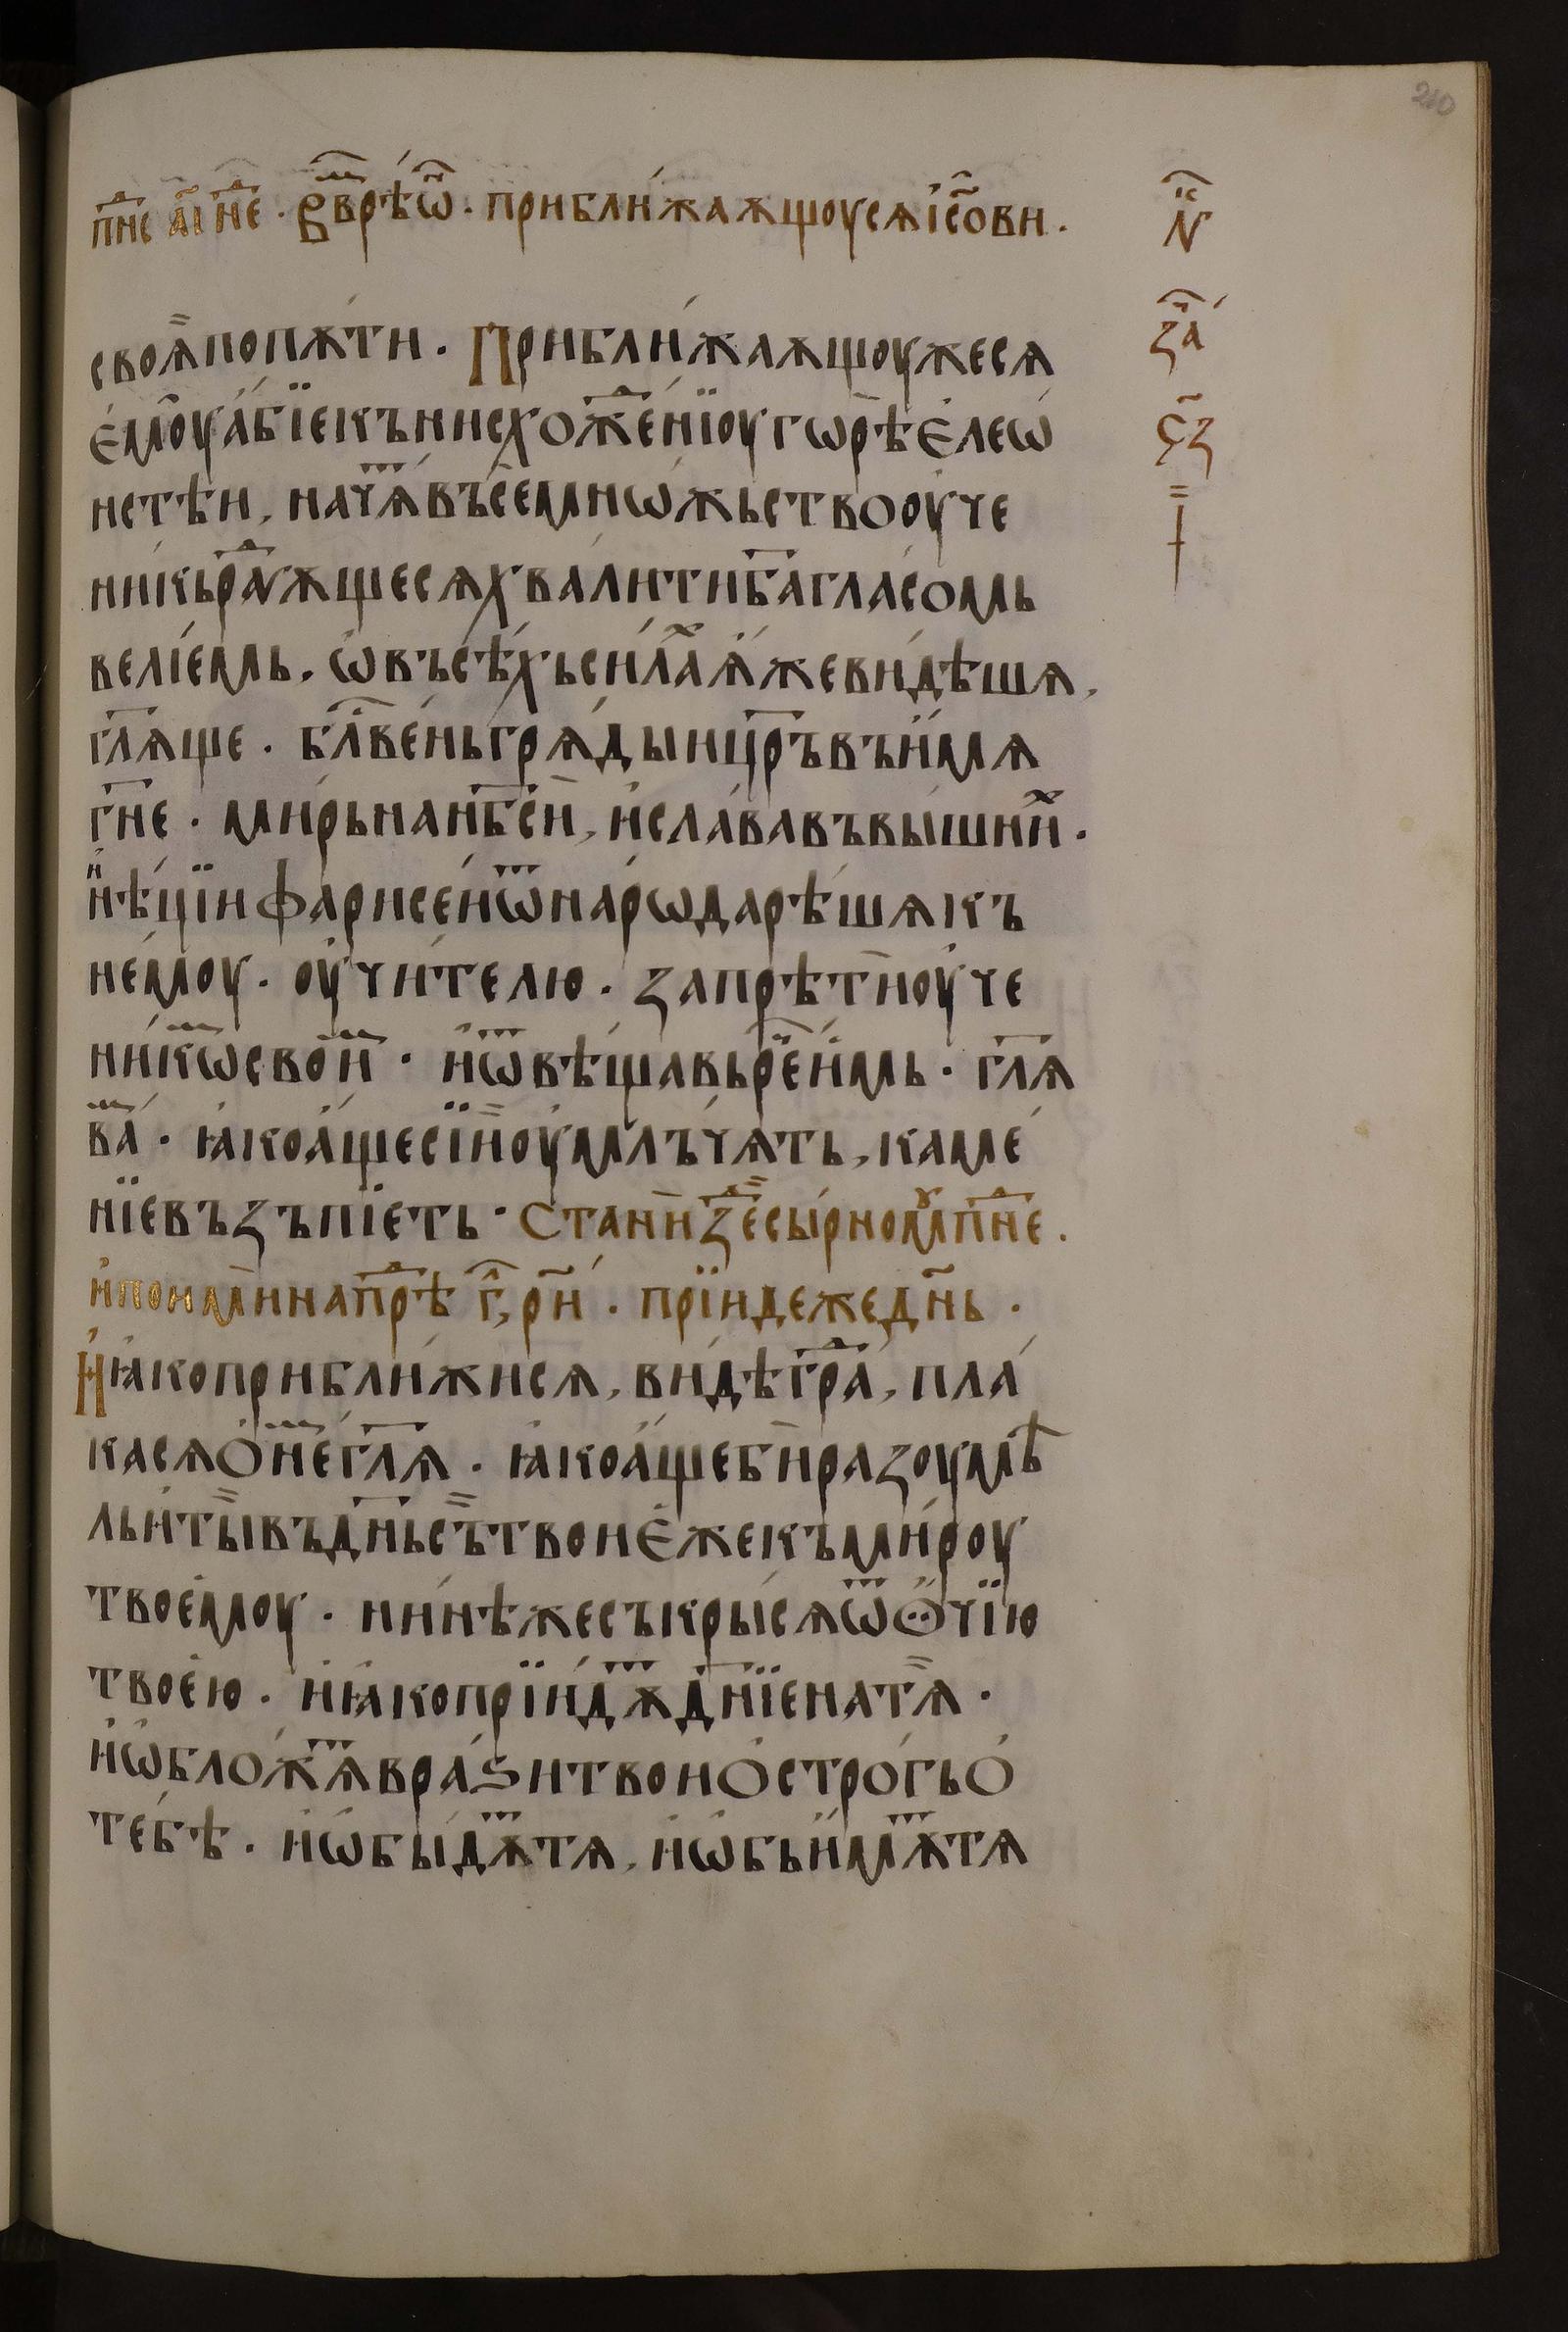 210
пⷣне а҃і нⷣе · Вⷨ врѣⷨѡ · приближаѫщоусѧ і҆с҃ови ·
своѧ҆ попѫти · Приближаѫщоужесѧ
є҆моу а҆бїе къ нисхожⷣенїоу гѡрѣ є҆леѡ
нстѣи, начѧⷮ въсе мнѡжьство оу҆че
никь раⷣꙋѫщесѧ хвалити ба҃ гласомь
велїемь. ѡ҆ въсѣхь силаⷯ ѧ҆же видѣшѧ,
гл҃ѧще · бл҃веннь грѧдыи цр҃ъ въ и҆мѧ
гн҃е · мирь на нб҃си, и҆ слава въ вышниⷯ ·
Н
нѣцїи фарисеи ѿ народа рѣшѧ къ
немоу · оу҆чителю · запрѣти оу҆че
никѡⷨ своиⷨ · и҆ ѿвѣщавь реⷱ҇ и҆мь · гл҃ѧ
ваⷨ · ꙗ҆ко а҆ще сїи оу҆млъчѧть, каме
нїе възъпїеть · Стаⷩи зⷣе сырномꙋ пⷩⷣе ·
и҆ поими напрⷣѣ г҃, рн҃ · прїидеже дн҃ь ·
И ꙗ҆ко приближисѧ, видѣ граⷣ, пла
касѧ ѻ҆ неⷨ гл҃ѧ · ꙗ҆ко а҆ще би разоумѣ
ль и҆ ты въ дн҃ь съ твои є҆же къ мироу
твоемоу · нинѣже съкрысѧ ѿ ѻ҆чїю
твоею · и҆ ꙗ҆ко прїидѫⷮ дн҃їе на тѧ ·
и҆ ѡ҆бложѧⷮ вразⷥи твои ѻ҆строгь ѻ҆
тебѣ · и҆ ѡ҆быдѫⷮ тѧ, и҆ ѡ҆бьимѫⷮ тѧ
за҃
ч҃з